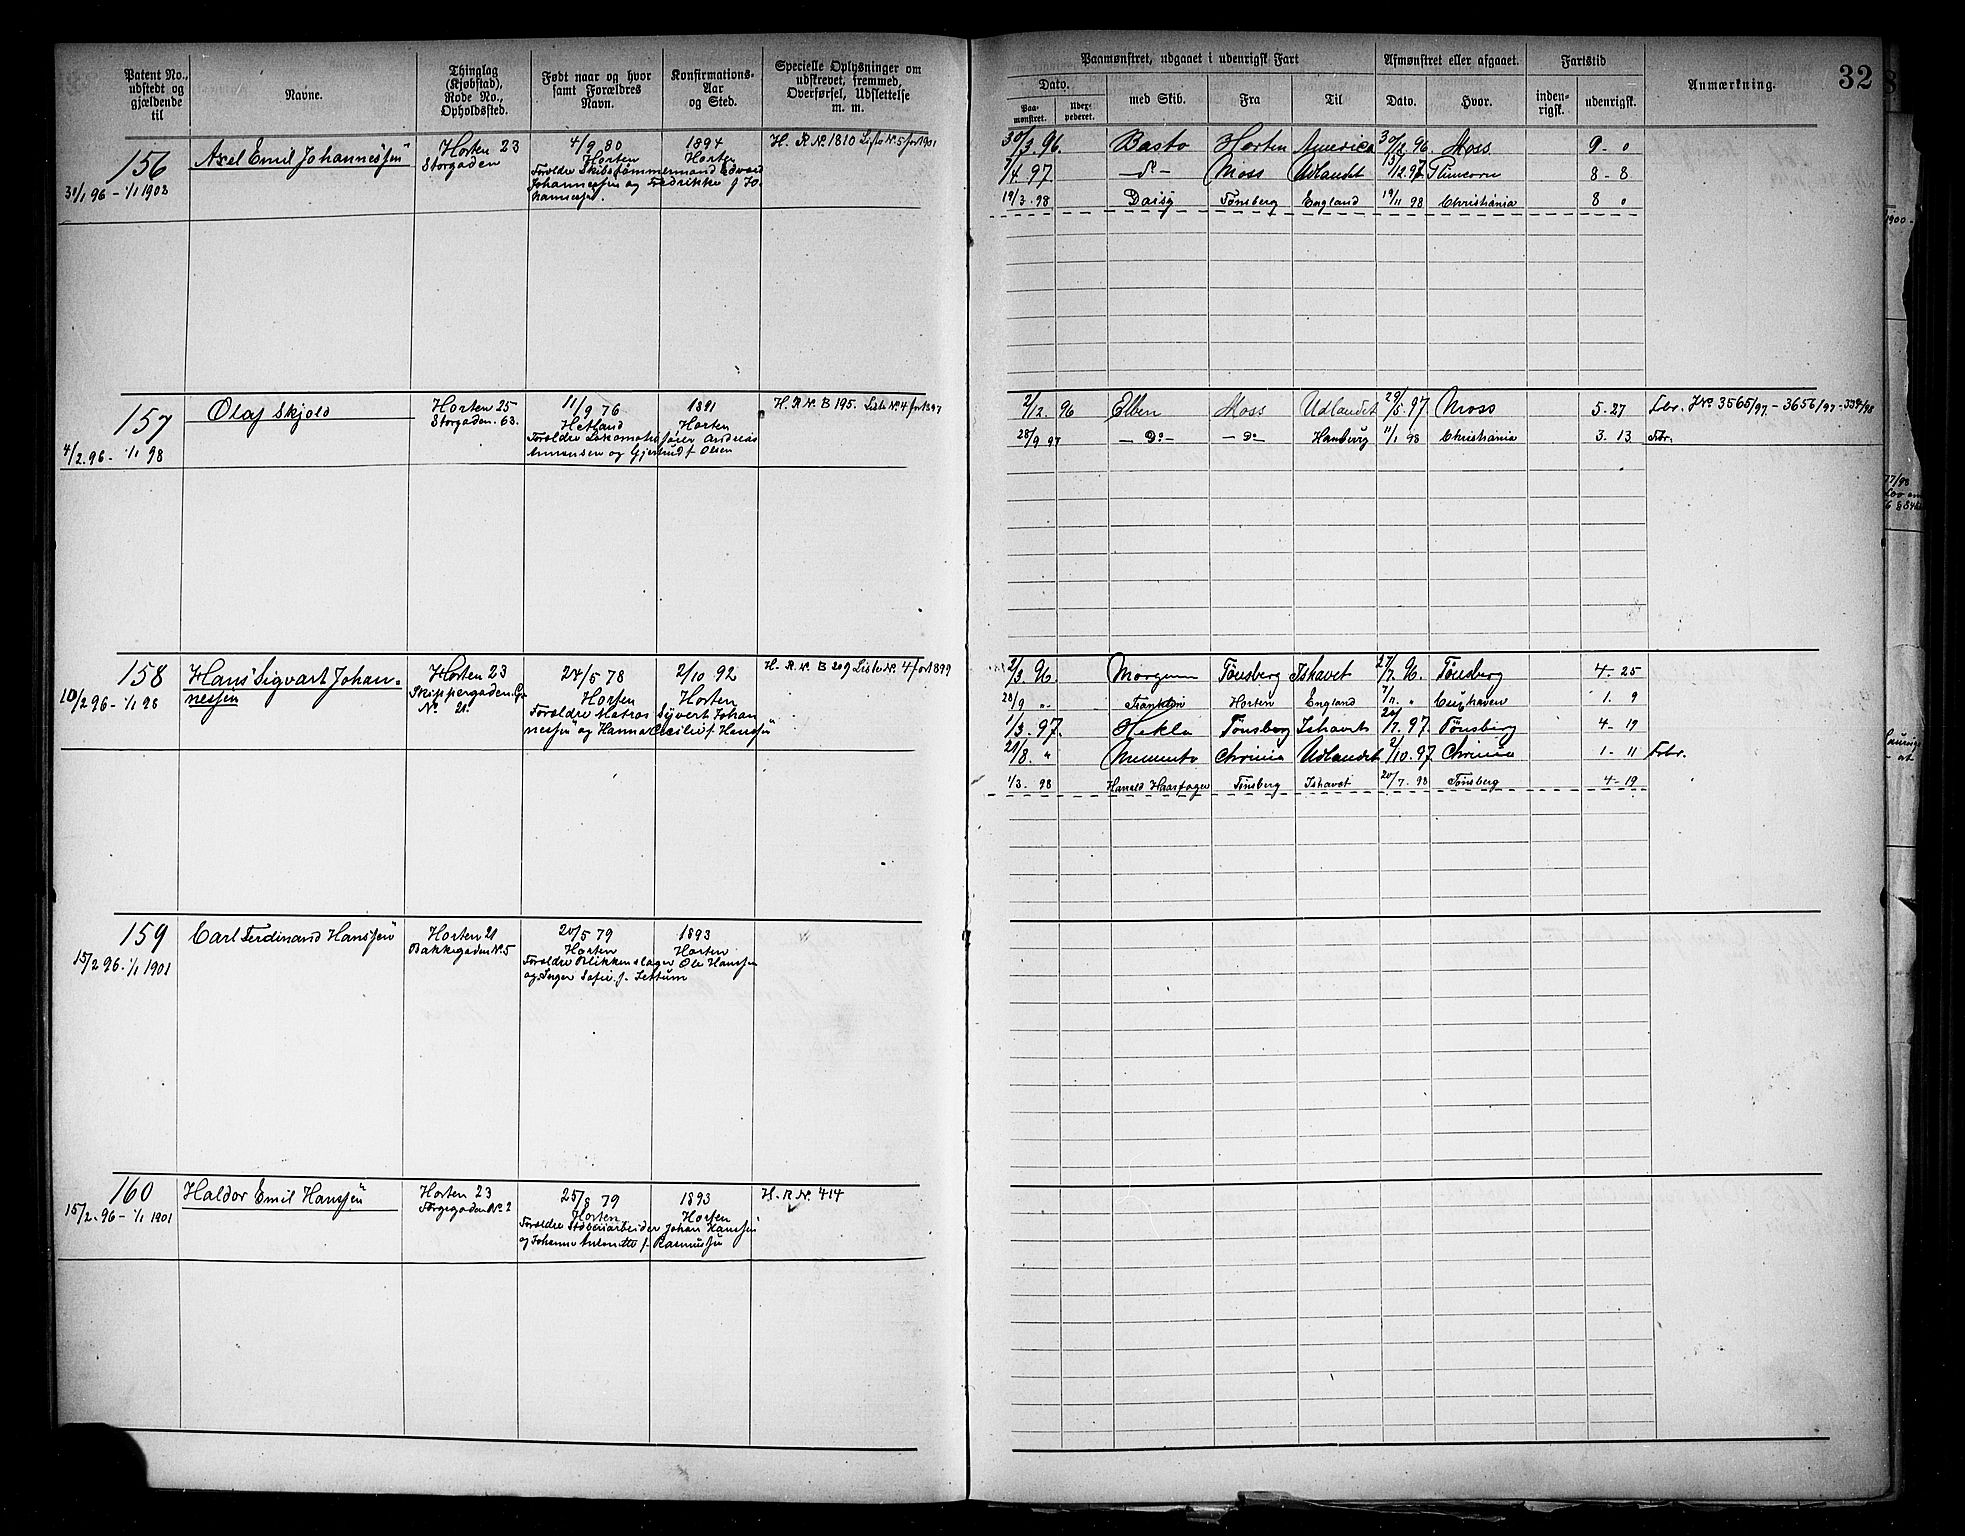 Patent No., udstedt og gjældende til
Navne.
Thinglag (Kjøbstad), Rode No., Opholdssted.
Født naar og hvor samt Forældres Navn.
Konfirmations-Aar og Sted.
Specielle Oplysninger om udskrevet, fremmed, Overførsel, Udslettelse m. m.
Paamønstret, udgaaet i udenrigsk Fart
Afmønstret eller afgaaet.
Fartstid
Anmærkning.
32
Dato.
Paa-monstret.
med Skib.
Fra
Til
Dato.
Hvor.
inden-rigsk.
udenrigsk.
156
31/1 96 - 1/1 1903
Axel Emil Johannessen
Horten 23
Storgaden
4/9 80
Horten
Forældre Skibstømmermand Edvard
Johannessen og Fredrikke f Jo-
hannessen.
1894
Horten
H. R. No. 1810 Liste No. 5 for 1901
30/3 96. Basto Horten America 30/12 96 Moss 9 - 0
1/4. 97 - Do - Moss Udlandet 15/12 97 8 - 8
19/3 98 Daisy Tønsberg England 19/11 98 Christiania 8 0
157
4/2. 96 - 1/1 98
Olaf Skjold
Horten 25
Storgaden. 63.
11/9 76
Hetland
Forældre Lokomotivfører Andreas
og Gjertrud f Olsen
1891
Horten
H. R No. B 195. Liste No. 4 for 1897
2/12. 96 Elben Moss Udlandet 29/5. 97 Moss 5 - 27 Fbr. J No. 3565/97 - 3656/97 - 334/98
28/9 97 - Do - - Do - Hamburg 11/1 98 Christiania 3. 13 Fbr.
158
10/2 96 - 1/1 98
Hans Sigvart Johan-
nessen
Horten 23
Skippergaden
No. 21.
24/5 78
Horten
Forældre Matros Syvert Johan
nessen og Hanna Cecilie f Hanssen
2/10 92
Horten
H. R. No. B 209 Liste No. 4 for 1899
2/3 96 Morgenen Tønsberg Ishavet 27/7. 96. Tønsberg 4 - 25
28/9 " Franklin Horten England 7/11. " Cuxhaven 1. 9
1/3. 97. Hekla Tønsberg Ishavet 20/7. 97. Tønsberg 4 - 19
21/8. " Memento Chrinia Udlandet 2/10. 97 Chrinia 1 - 11 Fbr.
1/3. 98 Harald Haarfager Tønsberg Ishavet 20/7. 98 Tønsberg 4 - 19
159
15/2 96. - 1/1 1901
Carl Ferdinand Hanssen
Horten 21
Bakkegaden No. 5
20/5 79
Horten
Forældre Blikkenslager Ole Hanssen
og Inger Sofie f.
1893
Horten
160
15/2. 96 - 1/1 1901
Haldor Emil Hanssen
Horten 23
Færgegaden No. 2
25/8 79
Horten
Forældre Støberiarbeider Johan Hanssen
og Johanne Antonette f. Rasmussen
1893
Horten
H. R No. 414